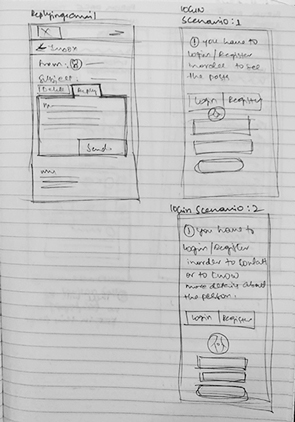 Replying email
X
← Inbox
From:
Subject:
Delete Reply
Send.
Login
Scenario: 1
① you have to
login/Register
inorder to see
the post
Login Register
login Scenario: 2
① you have to
login/Register
inorder to contact
or to know
more details about
the person.
Login Register